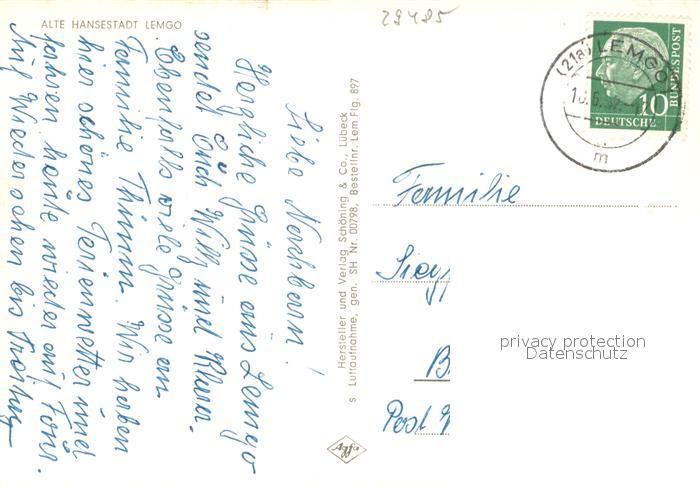 ALTE HANSESTADT LEMGO
29485
Liebe Nachbarn!
Herzliche Grüsse aus Lemgo
sendet Euch Willy und Klara.
Ebenfalls viele Grüsse an
Familie Thimm. Wir haben
hier schönes Ferienwetter und
fahren heute wieder auf Tour.
Auf Wiedersehen bis Freitag
Hersteller und Verlag Schöning & Co., Lübeck
s Luftaufnahme, gen. SH Nr. 00798, Bestellnr. Lem Flg. 897
Agfa
(21a) LEMGO
m
10
DEUTSCHE
BUNDESPOST
Familie
Sieg
B
Post
privacy protection
Datenschutz